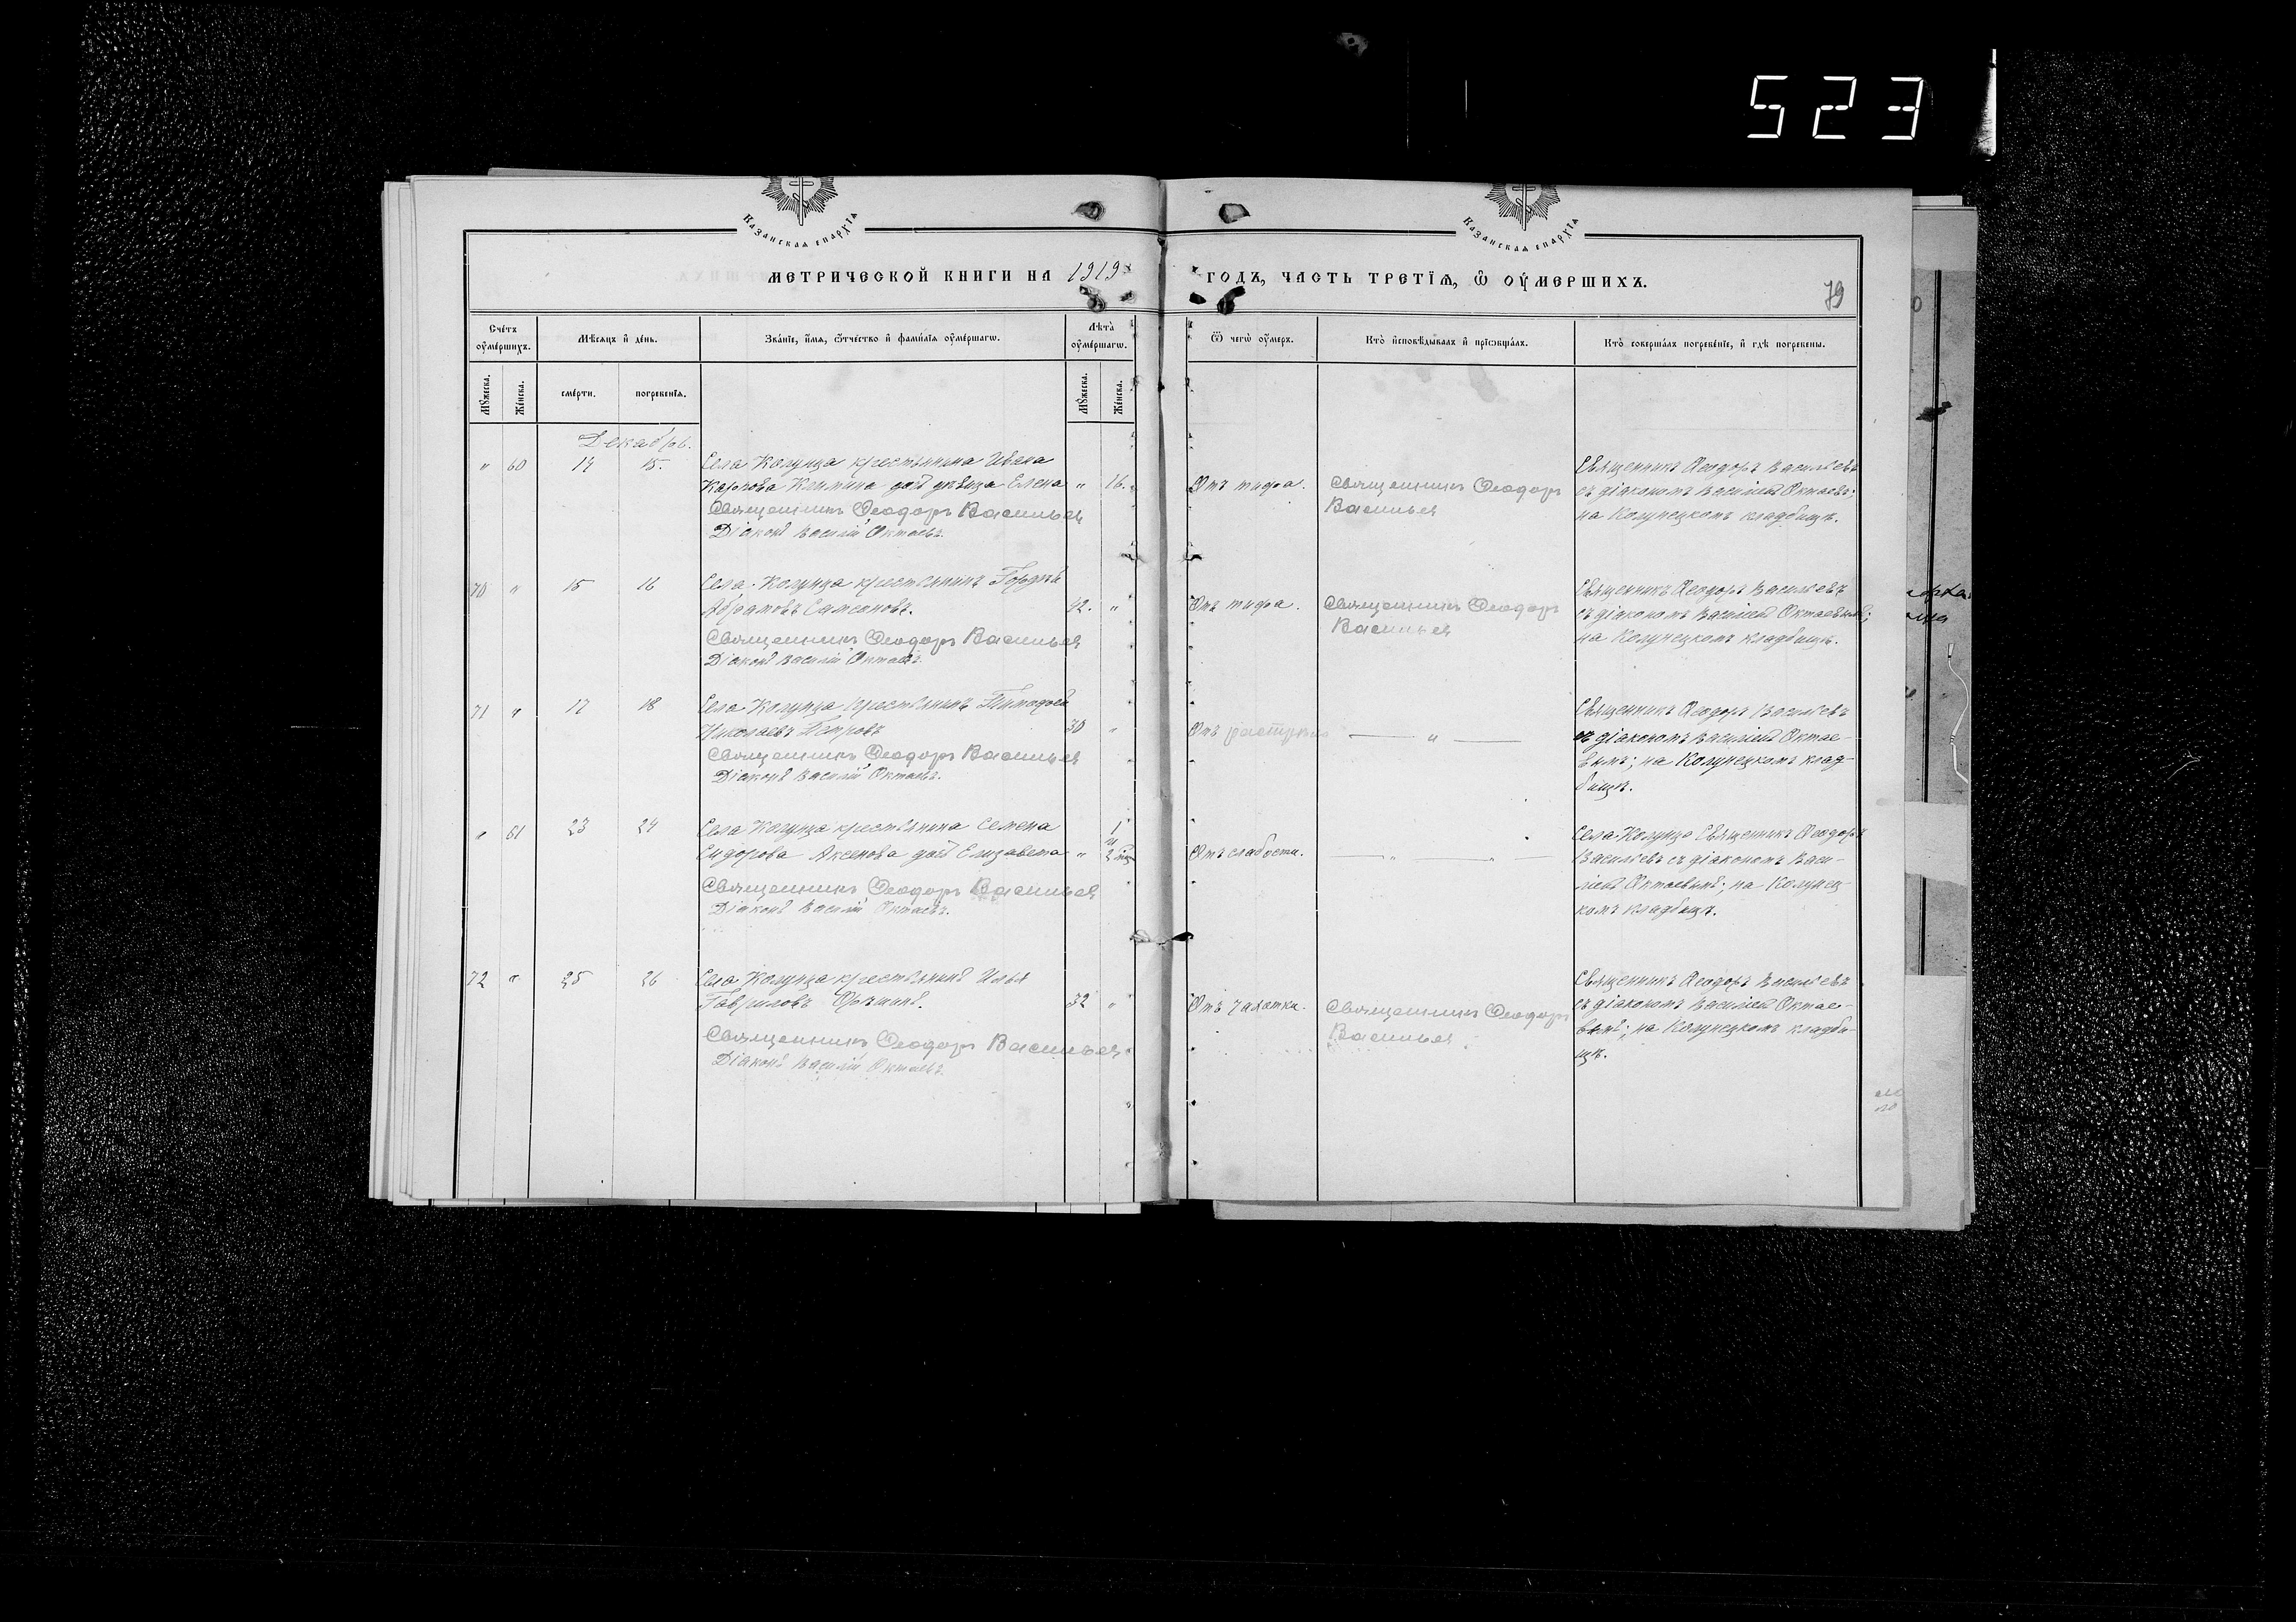 523
Казанская епархїѧ
Казанская епархїѧ
МЕТРИЧЕСКОЙ КНИГИ НА 1919
ГОДЪ, ЧАСТЬ ТРЕТІѦ, Ѡ ОУМЕРШИХЪ.
79
Счетъ оумершихъ.
Мѣсѧцъ и день.
Званіе, имѧ, отчество и фамиліѧ оумершагѡ.
Лѣта оумершагѡ.
Ѿ чегѡ оумеръ.
Кто исповѣдывалъ и пріобщалъ.
Кто совершалъ погребеніе, и гдѣ погребены.
Мужеска.
Женска.
смерти.
погребеніѧ.
Мужеска.
Женска.
Декабрь.
" 60 14 15. Села Колунца крестьянина Ивана
Карпова дѣвица Елена " 16.
Священникъ Ѳеодоръ Васильев
Діаконъ Василій Октаевъ.
Отъ тифа.
Священникъ Ѳеодоръ
Васильев
Священникъ Ѳеодоръ Васильевъ
съ діакономъ Василіемъ Октаевъ;
на Колунецкомъ кладбищѣ.
70 " 15 16 Села Колунца крестьянинъ Гордѣй
Абрамовъ Самсоновъ. 42. "
Священникъ Ѳеодоръ Васильев
Діаконъ Василій Октаевъ.
Отъ тифа.
Священникъ Ѳеодоръ
Васильев
Священникъ Ѳеодоръ Васильевъ
съ діакономъ Василіемъ Октаевымъ;
на Колунецкомъ кладбищѣ.
71 " 17 18 Села Колунца крестьянинъ Тимофей
Николаевъ Петровъ 30 "
Священникъ Ѳеодоръ Васильев
Діаконъ Василій Октаевъ.
Отъ
"
Священникъ Ѳеодоръ Васильевъ
съ діакономъ Василіемъ Октае-
вымъ; на Колунецкомъ клад-
бищѣ.
" 61 23 24 Села Колунца крестьянина Семена
Сидорова Аксенова Елизавета " 1 и
Священникъ Ѳеодоръ Васильев
Діаконъ Василій Октаевъ.
Отъ слабости.
" "
Села Колунца Священникъ Ѳеодоръ
Васильевъ съ діакономъ Васи-
ліемъ Октаевымъ; на Колунец-
комъ кладбищѣ.
72 " 25 26 Села Колунца крестьянинъ Илья
Гавриловъ 32 "
Священникъ Ѳеодоръ Васильев
Діаконъ Василій Октаевъ.
Отъ чахотки.
Священникъ Ѳеодоръ
Васильев
Священникъ Ѳеодоръ Васильевъ
съ діакономъ Василіемъ Октае-
вымъ; на Колунецкомъ кладби-
щѣ.